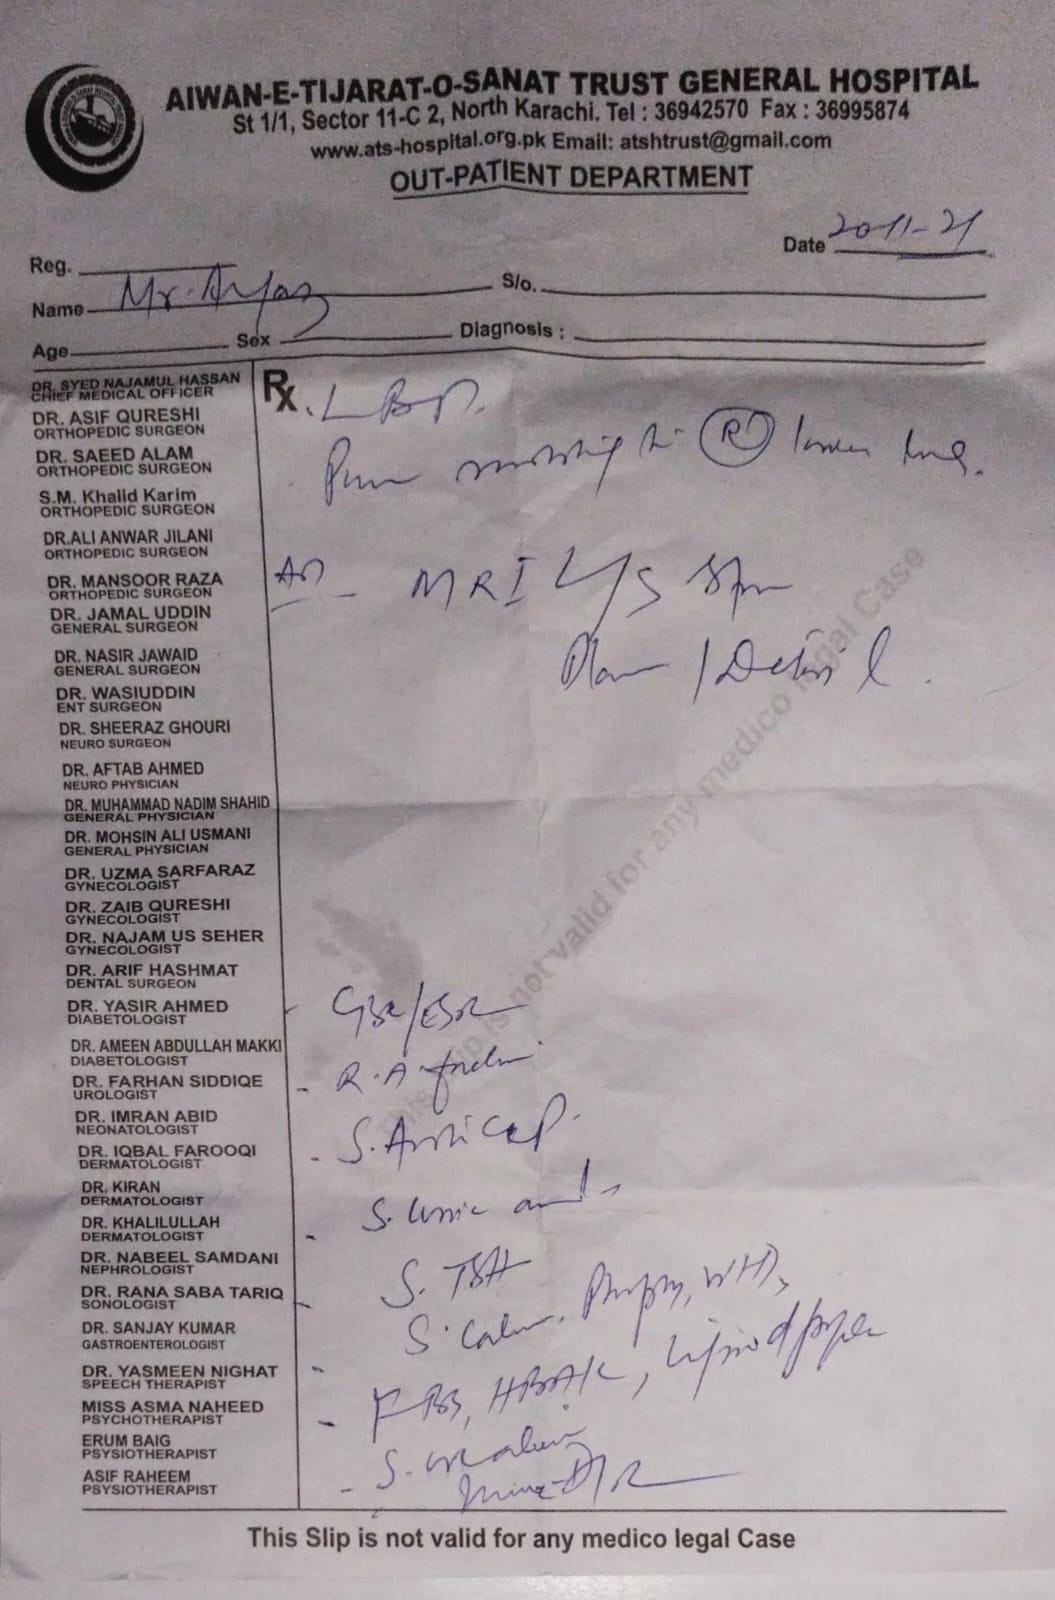 AIWAN-E-TIJARAT-O-SANAT TRUST GENERAL HOSPITAL
St 1/1, Sector 11-C 2, North Karachi. Tel : 36942570 Fax : 36995874
www.ats-hospital.org.pk Email: atshtrust@gmail.com
OUT-PATIENT DEPARTMENT
Date 20-11-21
Reg.
Name Mr. S/o.
Age Sex Diagnosis :
DR. SYED NAJAMUL HASSAN
CHIEF MEDICAL OFFICER
DR. ASIF QURESHI
ORTHOPEDIC SURGEON
DR. SAEED ALAM
ORTHOPEDIC SURGEON
S.M. Khalid Karim
ORTHOPEDIC SURGEON
DR.ALI ANWAR JILANI
ORTHOPEDIC SURGEON
DR. MANSOOR RAZA
ORTHOPEDIC SURGEON
DR. JAMAL UDDIN
GENERAL SURGEON
DR. NASIR JAWAID
GENERAL SURGEON
DR. WASIUDDIN
ENT SURGEON
DR. SHEERAZ GHOURI
NEURO SURGEON
DR. AFTAB AHMED
NEURO PHYSICIAN
DR. MUHAMMAD NADIM SHAHID
GENERAL PHYSICIAN
DR. MOHSIN ALI USMANI
GENERAL PHYSICIAN
DR. UZMA SARFARAZ
GYNECOLOGIST
DR. ZAIB QURESHI
GYNECOLOGIST
DR. NAJAM US SEHER
GYNECOLOGIST
DR. ARIF HASHMAT
DENTAL SURGEON
DR. YASIR AHMED
DIABETOLOGIST
DR. AMEEN ABDULLAH MAKKI
DIABETOLOGIST
DR. FARHAN SIDDIQE
UROLOGIST
DR. IMRAN ABID
NEONATOLOGIST
DR. IQBAL FAROOQI
DERMATOLOGIST
DR. KIRAN
DERMATOLOGIST
DR. KHALILULLAH
DERMATOLOGIST
DR. NABEEL SAMDANI
NEPHROLOGIST
DR. RANA SABA TARIQ
SONOLOGIST
DR. SANJAY KUMAR
GASTROENTEROLOGIST
DR. YASMEEN NIGHAT
SPEECH THERAPIST
MISS ASMA NAHEED
PSYCHOTHERAPIST
ERUM BAIG
PSYSIOTHERAPIST
ASIF RAHEEM
PSYSIOTHERAPIST
Rx. LBP.
Pain (R) lower
MRI L/S Spine
Plain / Detail.
- CBC/ESR
- R.A. factor
- S. Anti CCP.
S. uric acid
- S. TSH
S. Calcium,
- FBS, HBA1C, Lipid profile
- S.
This Slip is not valid for any medico legal Case
This Slip is not valid for any medico legal Case